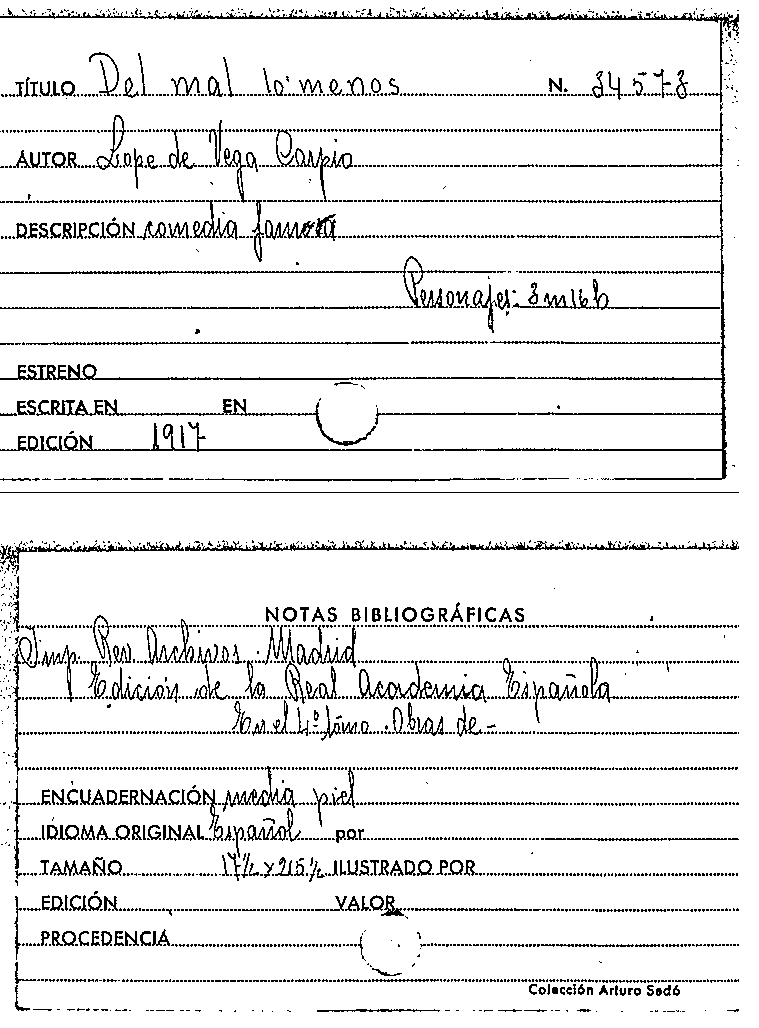 TÍTULO Del mal lo menos N. 34573
AUTOR Lope de Vega Carpio
DESCRIPCIÓN comedia famosa
Personajes: 3 m 16 h
ESTRENO
ESCRITA EN EN
EDICIÓN 1917
NOTAS BIBLIOGRÁFICAS
Imp. Rev. Archivos. Madrid
Edición de la Real Academia Española
En el 4º tomo. Obras de -
ENCUADERNACIÓN media piel
IDIOMA ORIGINAL Español por
TAMAÑO ILUSTRADO POR
EDICIÓN VALOR
PROCEDENCIA
Colección Arturo Sedó